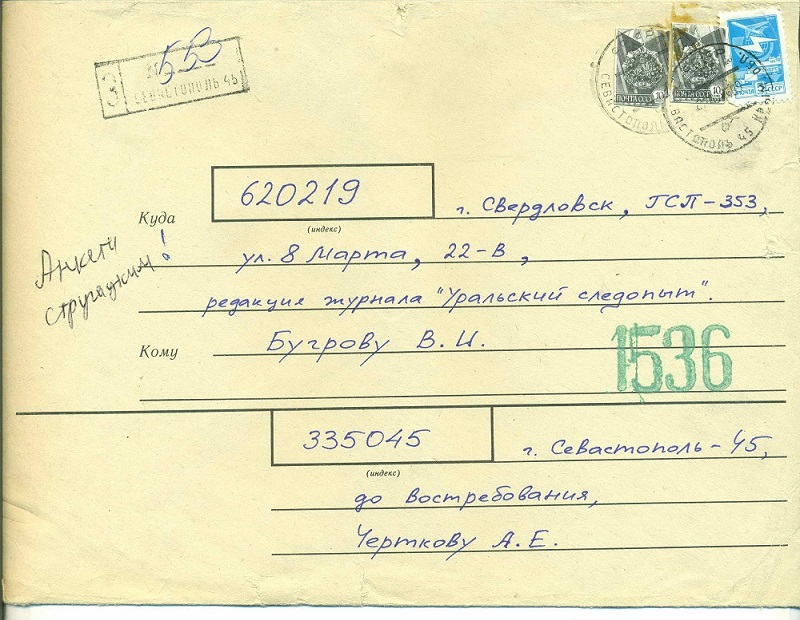 З 553
СЕВАСТОПОЛЬ 45
ПОЧТА СССР 10
ПОЧТА СССР
СЕВАСТОПОЛЬ
СЕВАСТОПОЛЬ 45
620219
Куда г. Свердловск, ГСП-353,
(индекс)
ул. 8 Марта, 22-В,
редакция журнала "Уральский следопыт".
Анкеты
стругацким!
Кому Бугрову В. И.
1536
335045
г. Севастополь-45,
(индекс)
до востребования,
Черткову А. Е.